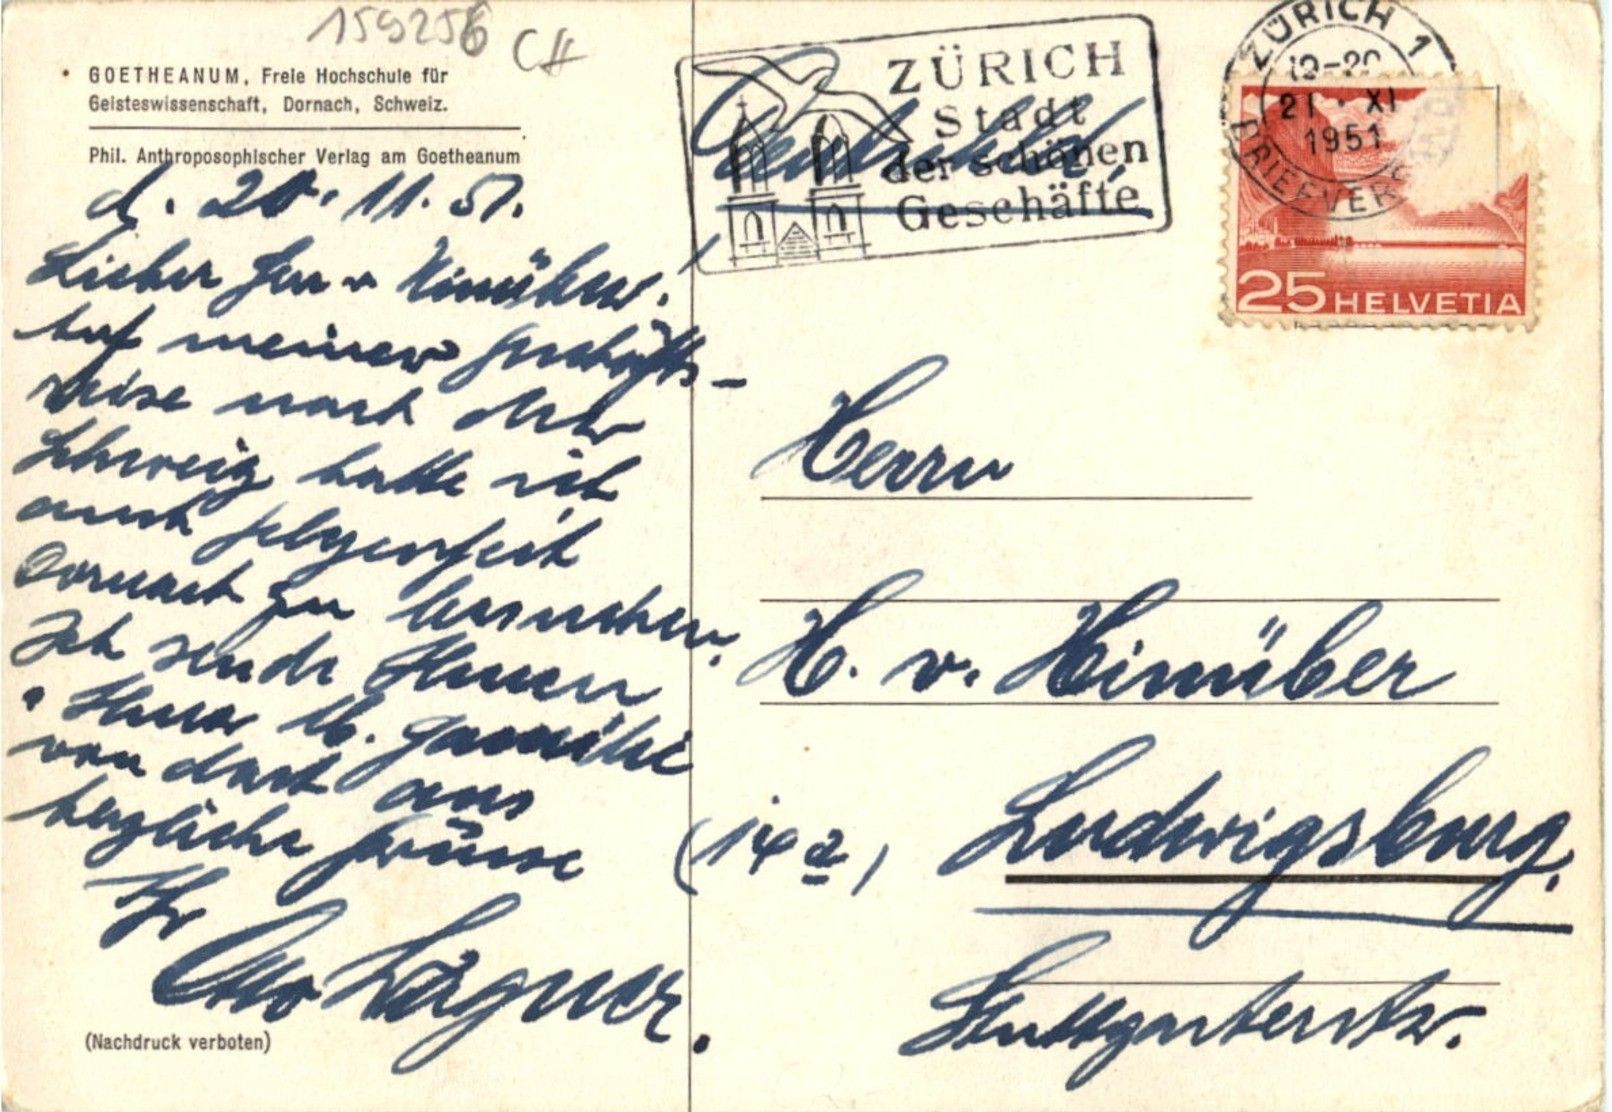 159256 CH
GOETHEANUM, Freie Hochschule für
Geisteswissenschaft, Dornach, Schweiz.
Phil. Anthroposophischer Verlag am Goetheanum
d. 20. 11. 51.
Lieber Herr v Himüber!
Auf meiner Geschäfts-
reise nach der
Schweiz hatte ich
auch Gelegenheit
Dornach zu besuchen.
Ich sende Ihnen
u. Ihrer lb. Familie
von dort aus
herzliche Grüsse
Ihr
Otto
(Nachdruck verboten)
Deutschland
ZÜRICH
Stadt
der schönen
Geschäfte
ZÜRICH 1
21 · XI
1951
BRIEFVERSAND
25 HELVETIA
Herrn
H. v. Himüber
(14a) Ludwigsburg,
Stuttgarterstr.